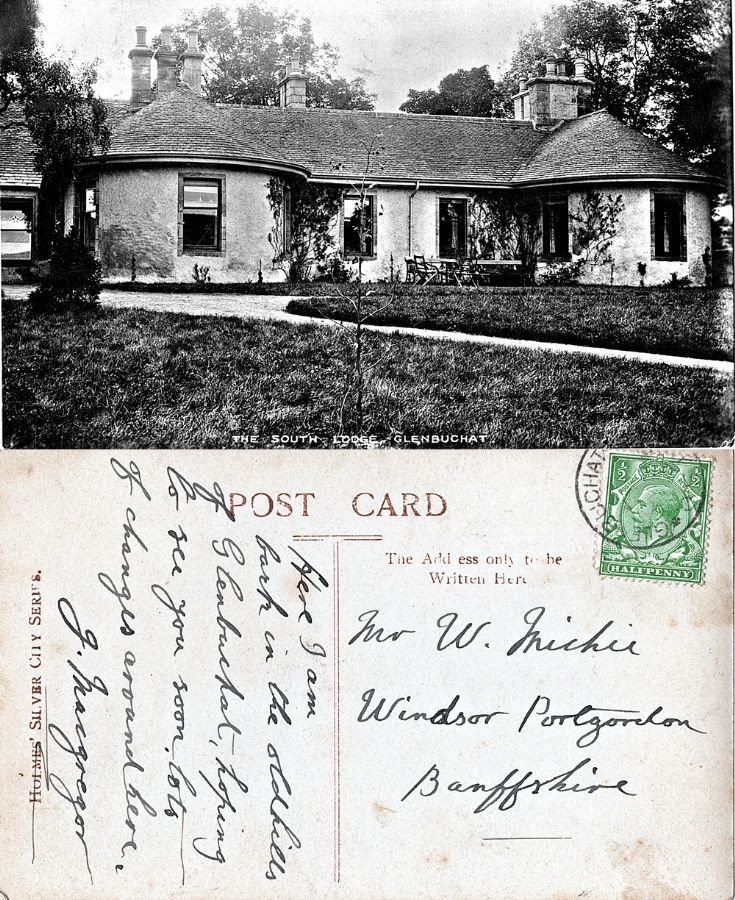 THE SOUTH LODGE - GLENBUCHAT.
POST CARD
The Add ess only to be
Written Here
½ ½
HALFPENNY
Mr W. Michie
Windsor Portgordon
Banffshire
Here I am
back in the old hills
of Glenbuchat, hoping
to see you soon, lots
of changes around here.
J. Macgregor
HOLMES' SILVER CITY SERIES.